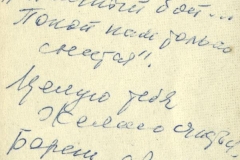 бой...
Покой нам только
снится".
Целую тебя
Желаю счастья